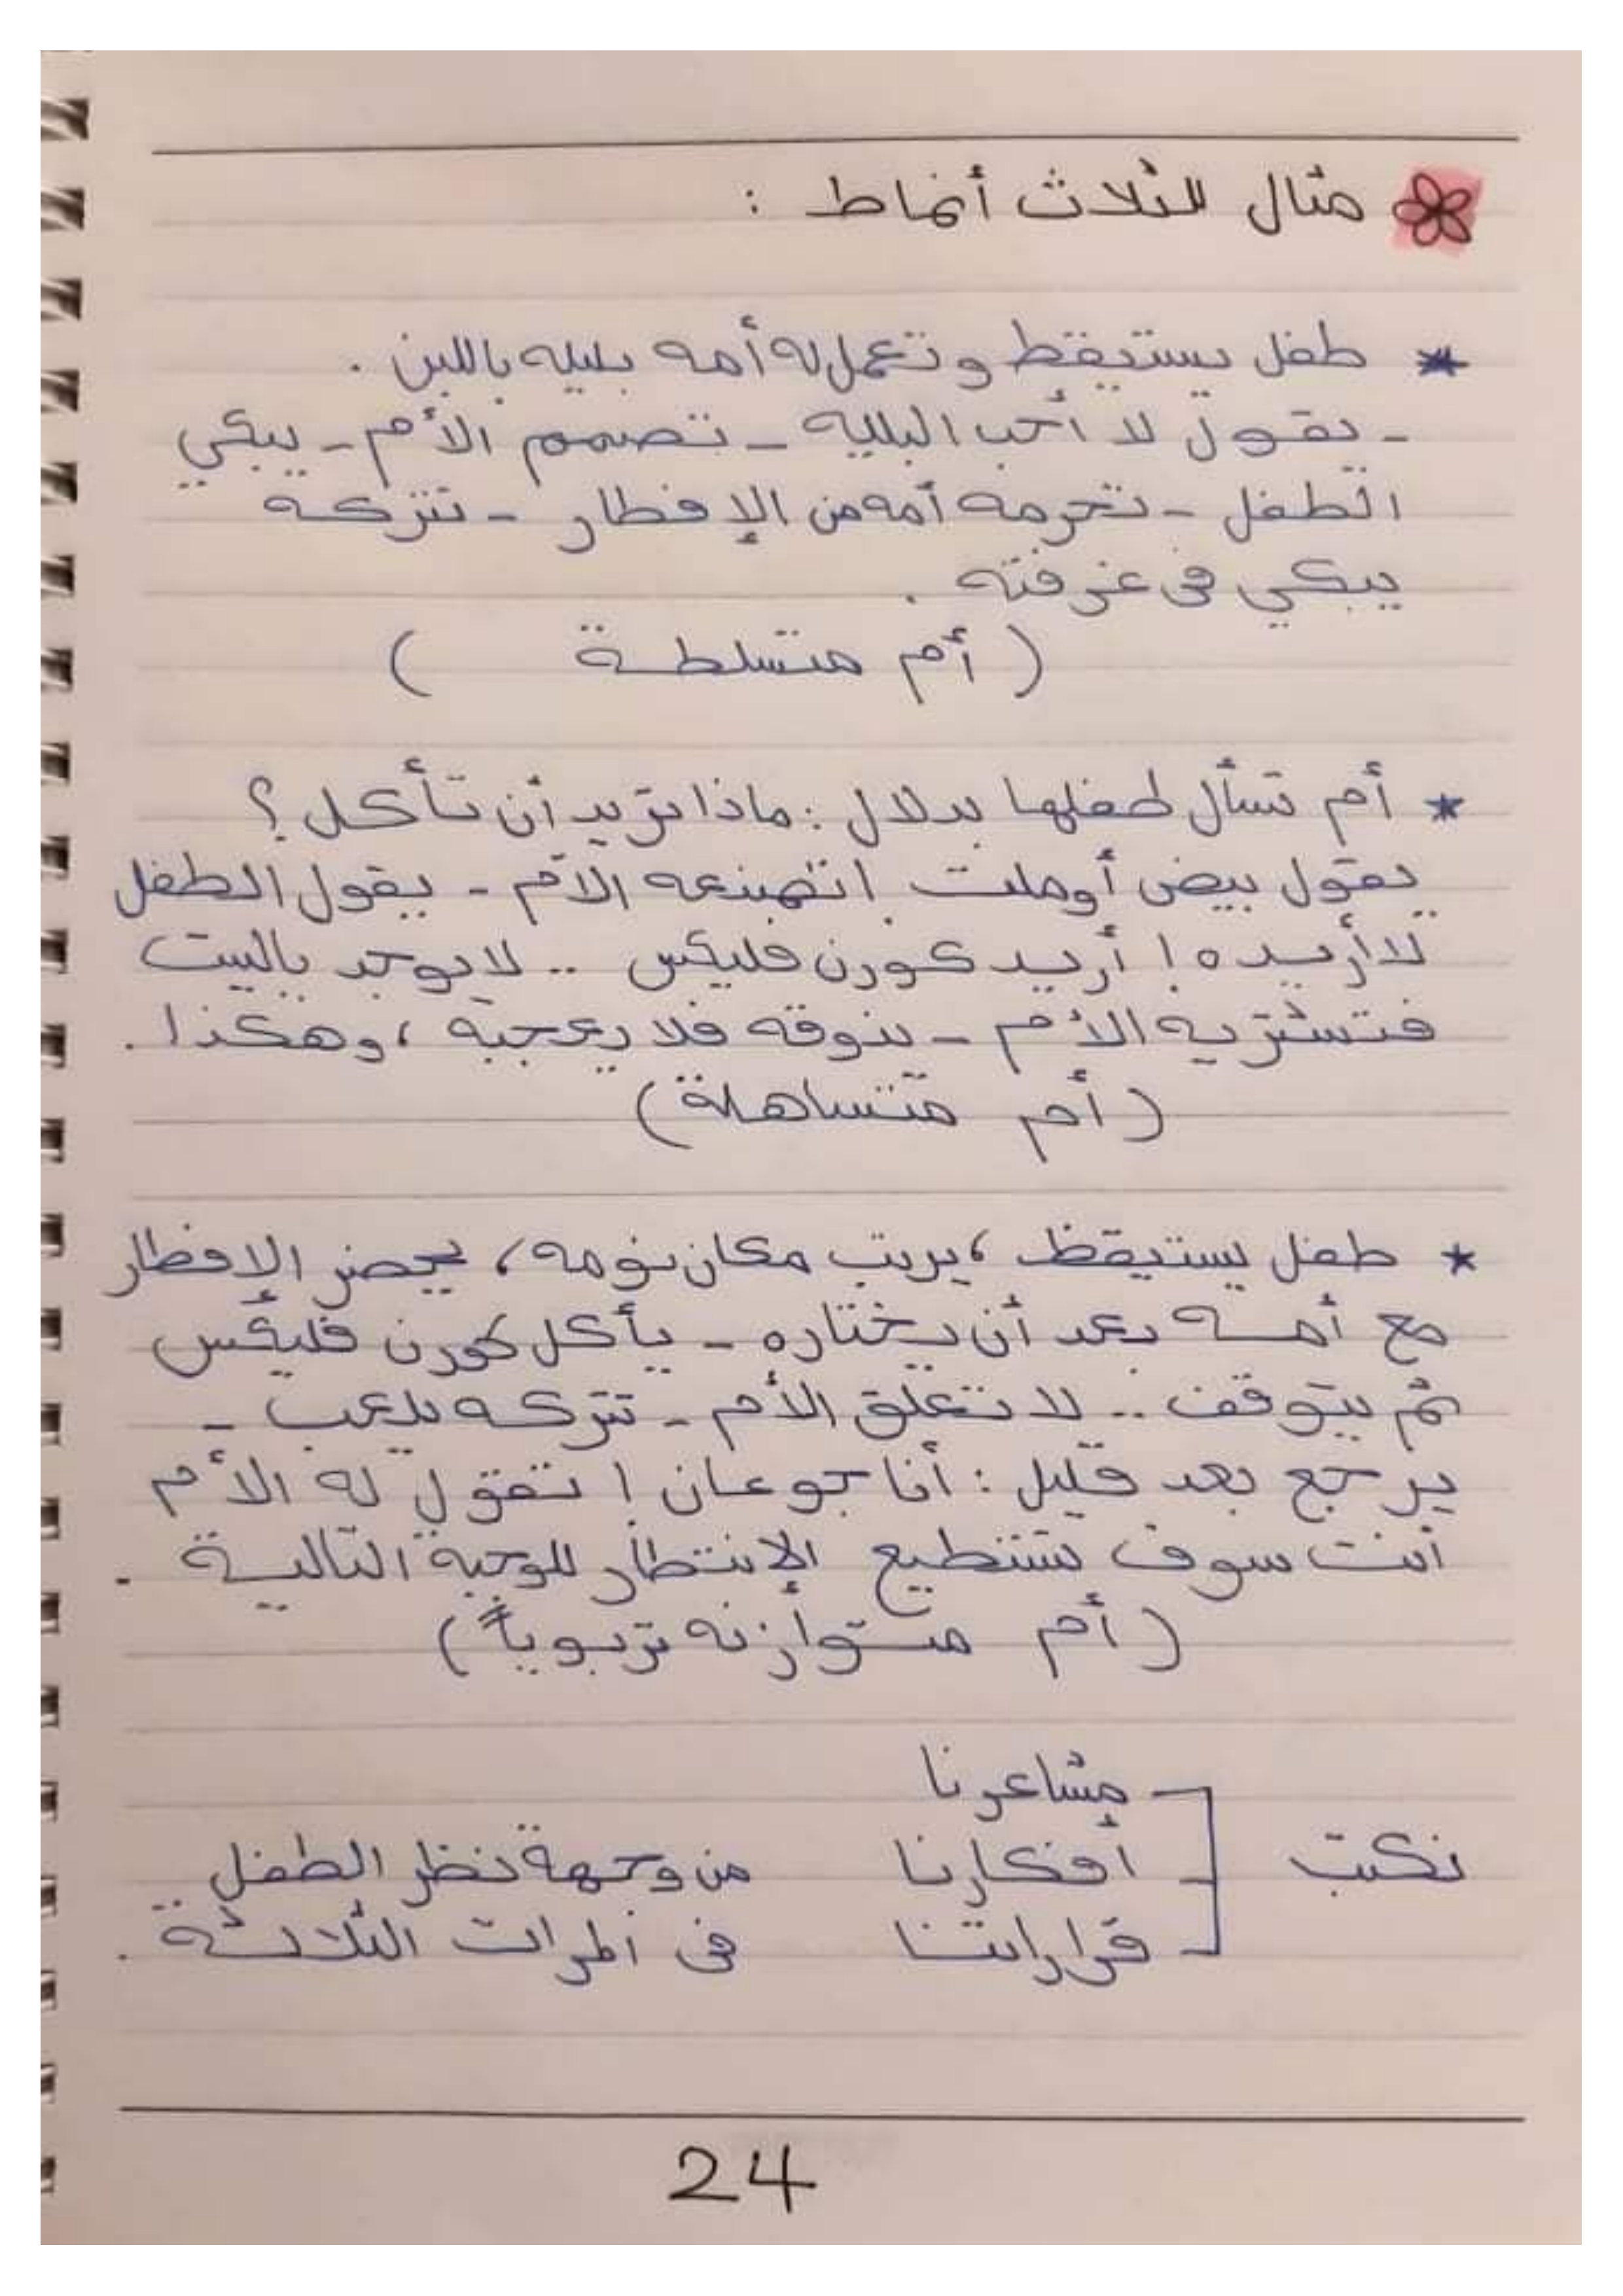 مثال للثلاث أنماط :
* طفل يستيقظ وتعمل له أمه بليله باللبن .
- يقول لا أحب البليه - تصمم الأم - يبكي
الطفل - تحرمه أمه من الإفطار - تتركه
يبكي فى غرفته .
( أم متسلطة )
* أم تسأل طفلها بدلال : ماذا تريد أن تأكل ؟
يقول بيض أومليت ! تصنعه الأم - يقول الطفل
لا أريده ! أريد كورن فليكس .. لا يوجد بالبيت
فتشتريه الأم - يذوقه فلا يعجبه ، وهكذا .
( أم متساهلة )
* طفل يستيقظ ، يرتب مكان نومه ، يحضر الإفطار
مع أمه بعد أن يختاره - يأكل كورن فليكس
ثم يتوقف .. لا تعلق الأم - تتركه يلعب -
يرجع بعد قليل : أنا جوعان ! تقول له الأم
أنت سوف تستطيع الإنتظار للوجبة التالية .
( أم متوازنه تربوياً )
مشاعرنا
نكتب أفكارنا من وجهة نظر الطفل
قراراتنا فى المرات الثلاثة .
24